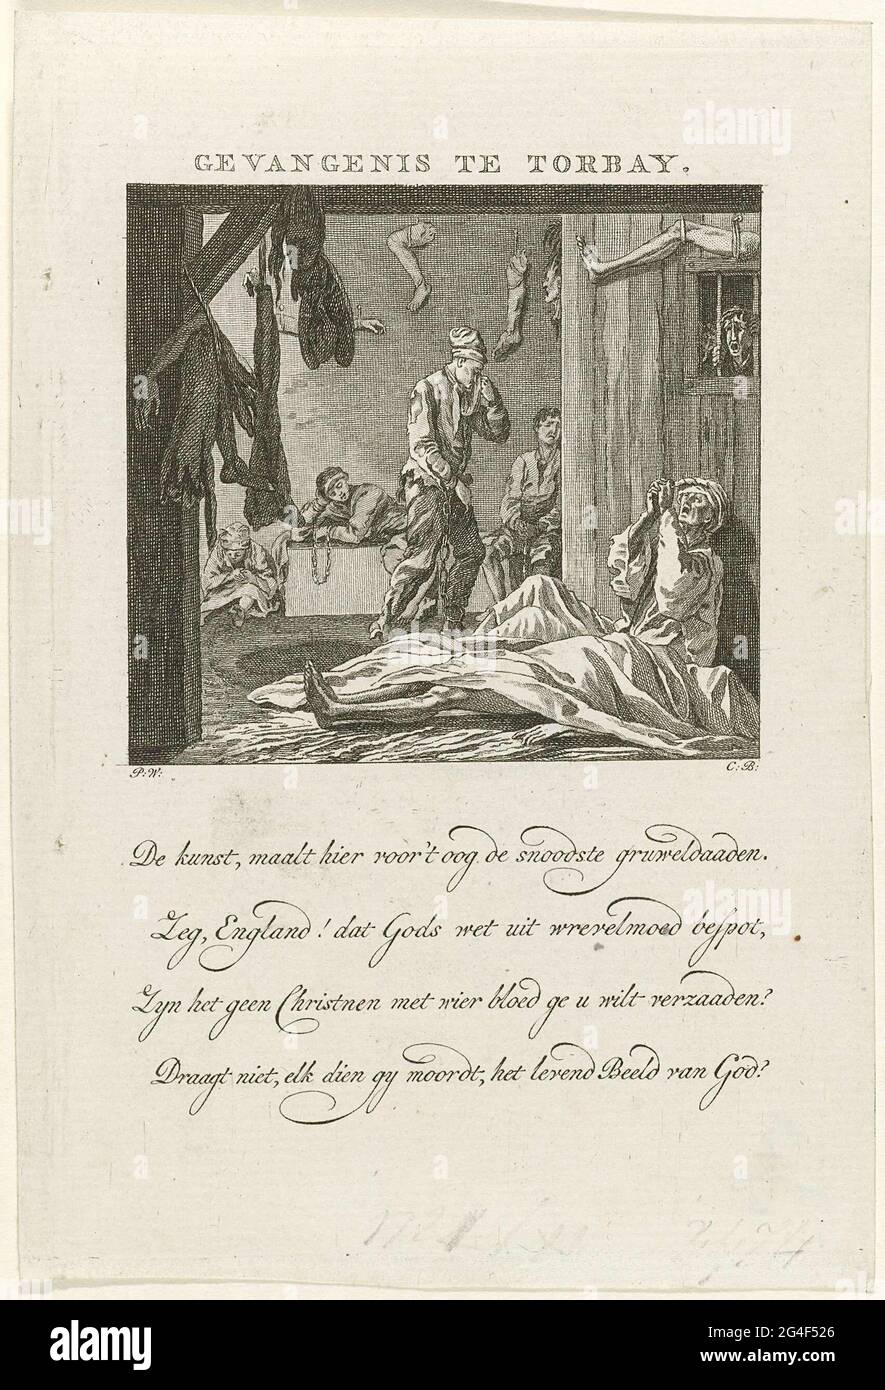 GEVANGENIS TE TORBAY.
P: W:
C: B:
De kunst, maalt hier voor't oog de snoodste gruweldaaden.
Zeg, England! dat Gods wet uit wrevelmoed bespot,
Zyn het geen Christnen met wier bloed ge u wilt verzaaden?
Draagt niet, elk dien gy moordt, het levend Beeld van God?
alamy
Image ID: 2G4F526
www.alamy.com